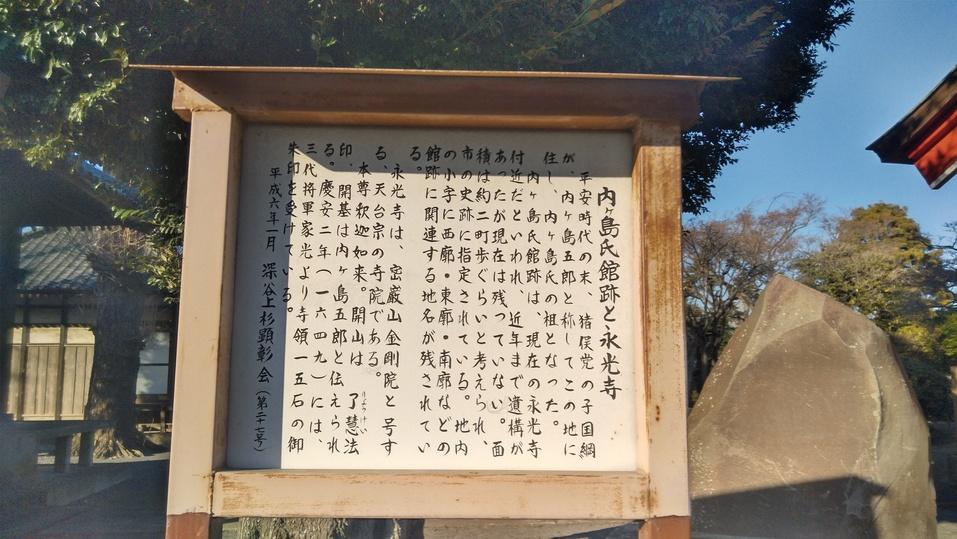 内ヶ島氏館跡と永光寺
平安時代の末、猪俣党の子国綱
が、内ヶ島五郎と称してこの地に
住し、内ヶ島氏の祖となった。
内ヶ島氏館跡は、現在の永光寺
付近だといわれ、近年まで遺構が
あったが現在は残っていない。面
積は約二町歩ぐらいと考えられ、
市の史跡に指定されている。地内
の小字に西廓・東廓・南廓などの
館跡に関連する地名が残されてい
る。
永光寺は、密巌山金剛院と号す
る、天台宗の寺院である。
本尊釈迦如来。開山は了慧法
りょうけい
印、開基は内ヶ島五郎と伝えられ
る。慶安二年(一六四九)には、
三代将軍家光より寺領一五石の御
朱印を受けている。
平成六年一月 深谷上杉顕彰会(第二十七号)